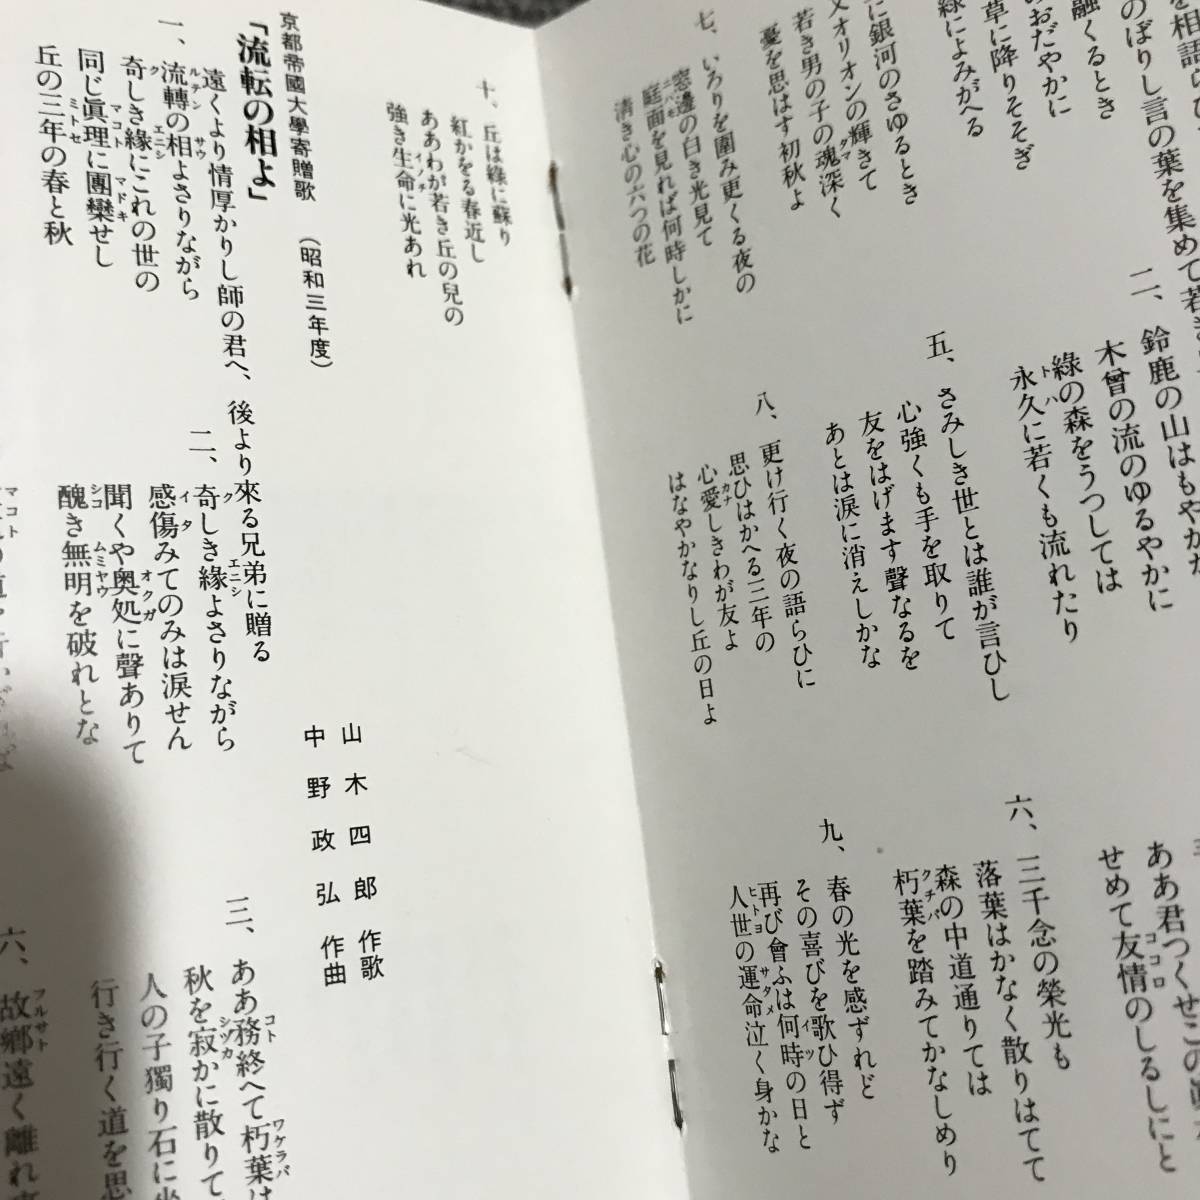 鈴鹿の山はもやかな
二、
木曾の流のゆるやかに
綠の森をうつしては
永久に若くも流れたり
トハ
ああ君つくせこの
せめて友情のしるしにと
ココロ
に銀河のさゆるとき
オリオンの輝きて
若き男の子の魂深く
タマ
憂を思はす初秋よ
五、さみしき世とは誰が言ひし
心強くも手を取りて
友をはげます聲なるを
あとは涙に消えしかな
六、三千念の榮光も
落葉はかなく散りはてて
森の中道通りては
朽葉を踏みてかなしめり
クチバ
七、いろりを圍み更くる夜の
窓邊の白き光見て
庭面を見れば何時しかに
ニハモ
淸き心の六つの花
八、更け行く夜の語らひに
思ひはかへる三年の
心愛しきわが友よ
カナ
はなやかなりし丘の日よ
九、春の光を感ずれど
その喜びを歌ひ得ず
再び會ふは何時の日と
イツ
人世の運命泣く身かな
ヒトヨ サタメ
十、丘は綠に蘇り
紅かをる春近し
ああわが若き丘の兒の
強き生命に光あれ
イノチ
京都帝國大學寄贈歌　（昭和三年度）
山木四郎　作歌
中野政弘　作曲
「流転の相よ」
遠くより情厚かりし師の君へ、後より來る兄弟に贈る
一、流轉の相よさりながら
ルテン サウ
奇しき緣にこれの世の
ク エニシ
同じ眞理に團欒せし
マコト マドキ
丘の三年の春と秋
ミトセ
二、奇しき緣よさりながら
ク エニシ
感傷みてのみは淚せん
イタ
聞くや奥処に聲ありて
オクガ
醜き無明を破れとな
シコ ムミヤウ
三、ああ務終へて朽葉は
コト ワクラバ
秋を寂かに散りて
シヅカ
人の子獨り石に坐
行き行く道を思
マコト
六、故鄕遠く離れ
フルサト